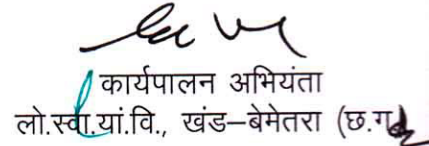 कार्यपालन अभियंता
लो.स्वा.यां.वि., खंड–बेमेतरा (छ.ग.